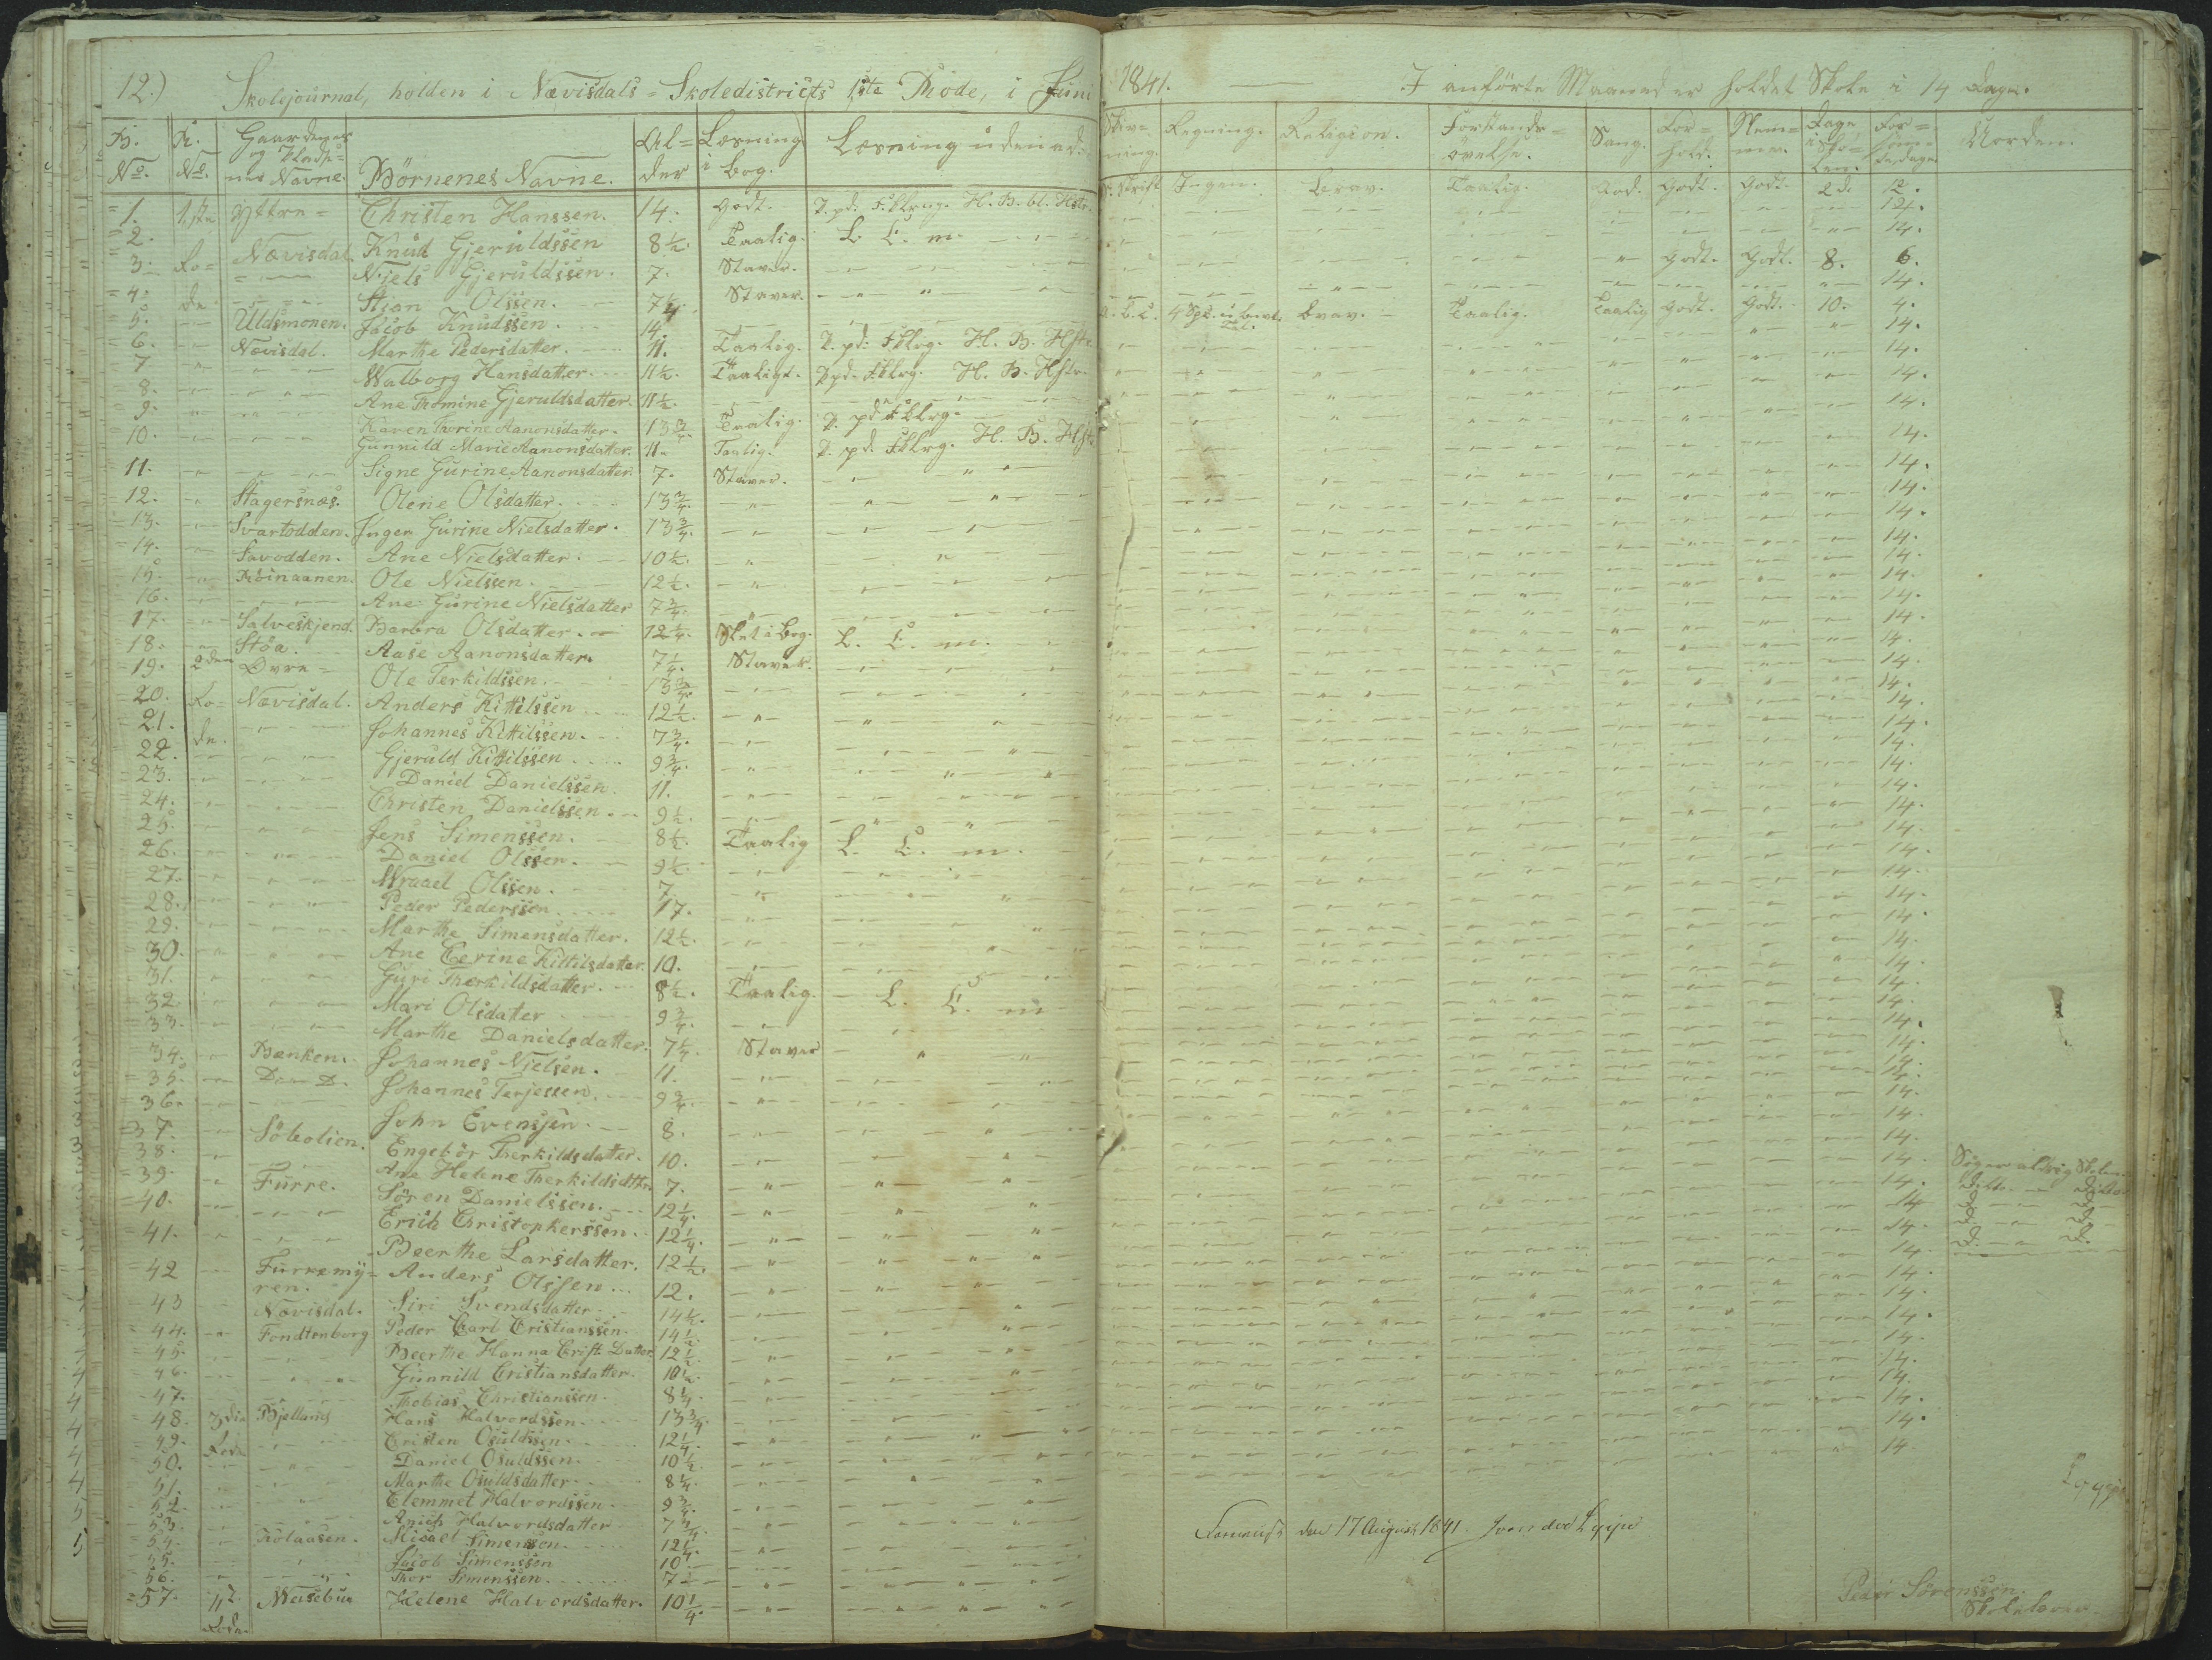 12.) Skolejournal, holden i Nævisdals-Skoledistricts 1ste Rode, i Juni 1841. I anförte Maaned er holdet Skole i 14 Dage.
B. No. R. No. Gaardenes og Pladse=nes Navne. Börnenes Navne. Al=der Læsning i Bog. Læsning udenad. Skriv=ning. Regning. Religion. Forstands=övelse. Sang. For=hold. Nem=me. Dage i Sko=len. For=sömm=te Dage. Norden.
1. 1ste Yttre= Christen Hanssen. 14. godt. P. pd. Fklrng. H. B. bl. Hstr. Skrift Ingen. Brav. Taalig. God. godt. godt. 2d. 12.
2. Nævisdal. Knud Gjeruldssen 8½. Taalig. L. C. m. 12.
3. Ro= Niels Gjeruldssen. 7. Staver. 14.
4. de Stian Olssen. 7¼ Staver. godt. godt. 8. 6.
5. Uldsmonen. Jacob Knudssen. 14. 14.
6. Nævisdal. Marthe Pedersdatter. 11. Taalig. P. pd. Fklrg. H. B. Hstr. a.b.c. 4 Spe. i bevt. Tal. Brav. Taalig. Taalig godt. godt. 10. 4.
7 Walborg Hansdatter. 11½. Taaligt. P. pd. Fklrg. H. B. Hstr. 14.
8. Ane Thomine Gjeruldsdatter. 11½. 14.
9. Karen Thorine Aanonsdatter. 13¾. Taalig. P. pd. Fklrg. 14.
10. Gunnild Marie Aanonsdatter. 11. Taalig. P. pd. Fklrg. H. B. Hstr. 14.
11. Signe Gurine Aanonsdatter. 7. Staver. 14.
12. Stagersnæs. Olene Olsdatter. 13¾. 14.
13. Svartodden. Inger Gurine Nielsdatter. 13¾. 14.
14. Savodden. Ane Nielsdatter. 10½. 14.
15. Röinaanen. Ole Nielssen. 12½. 14.
16. Ane Gurine Nielsdatter 7¾. 14.
17. Salveskjend. Barbra Olsdatter. 12¼. Slet i Bog. L. C. m. 14.
18. Stöa. Aase Aanonsdatter. 7¼. Staver. 14.
19. 2den Øvre= Ole Terkildssen. 13¾. 14.
20. Ro= Nævisdal. Anders Kittilssen 12½. 14.
21. de. Johannes Kittilssen. 7¾. 14.
22. Gjeruld Kittilssen 9¾. 14.
23. Daniel Danielssen. 11. 14.
24. Christen Danielssen. 9½. 14.
25. Jens Simenssen. 8½. Taalig L. C. m. 14.
26. Daniel Olssen. 9½. 14.
27. Wraael Olssen. 7. 14.
28. Peder Pederssen 17. 14.
29. Marthe Simensdatter. 12½. 14.
30. Ane Cerine Kittilsdatter. 10. 14.
31. Guri Therkildsdatter. 8½. Taalig. L. C. m 14.
32. Mari Olsdatter 9¾. 14.
33. Marthe Danielsdatter. 7½. Staver 14.
34. Bænken. Johannes Nielsen. 11. 14.
35. D. Johannes Terjessen. 9¾. 14.
36. John Evensjen. 8. 14.
37. Söbolien. Engebör Therkildsdatter. 10. 14.
38. Ane Helene Therkildsdtter. 7. 14.
39. Furre. Sören Danielssen. 12¼. 14. Söger aldrig Skolen
40. Erich Christopherssen. 12¼. 14. ditto ditto
41. Beerthe Larsdatter. 12½. 14 D. D.
42 Furremy=ren. Anders Olssen. 12. 14. D. D.
43 Nævisdal. Siri Svendsdatter. 14½. 14. D. D.
44. Fondtenborg Peder Carl Cristianssen. 14½. 14.
45. Beerthe Hanna Crist. Datter. 12½. 14.
46. Gunnild Cristiansdatter. 10½. 14.
47. Thobias Christianssen. 8¼. 14.
48. 3die Bjelland Hans Halvordssen. 13¾. 14.
49. Rode Cristen Osuldssen. 12¼. 14.
50. Daniel Osuldssen. 10½. 14.
51. Marthe Osuldsdatter. 8¼. 14.
52. Clemmet Halvordssen. 9¾.
53. Anich Halvordsdatter 7¾.
54. Kolaasen. Micael Simenssen. 12¼.
55. Jacob Simenssen 10
56. Thor Simenssen. 7
57. Masebue Helene Halvordsdatter. 10¼.
Rode.
den 17 August 1841.
Peder Sörenssen.
Skolelærer